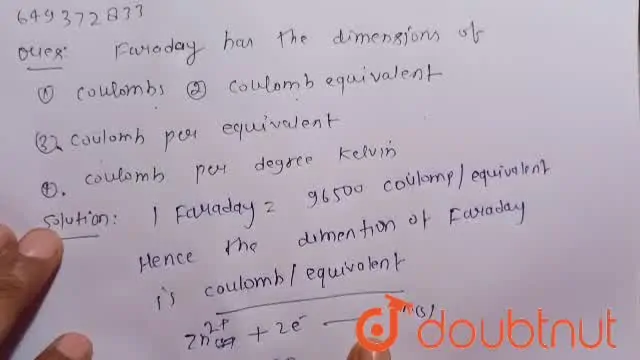 649372833
Ques: Faraday has the dimensions of
① coulombs ② coulomb equivalent
③ coulomb per equivalent
④. coulomb per degree Kelvin
Solution: 1 Faraday = 96500 coulomp/equivalent
Hence the dimention of Faraday
is coulomb/equivalent
Zn2+ + 2e-
doubtnut